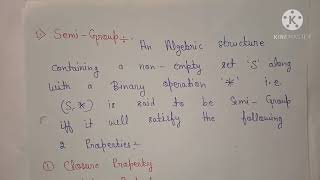 Semi-Group :-
An Algebric structure
containing a non-empty set 'S' along
with a Binary operation '*' i.e.
(S,*) is said to be Semi-Group
iff it will satisfy the following
2 Properties :-
① Closure Property